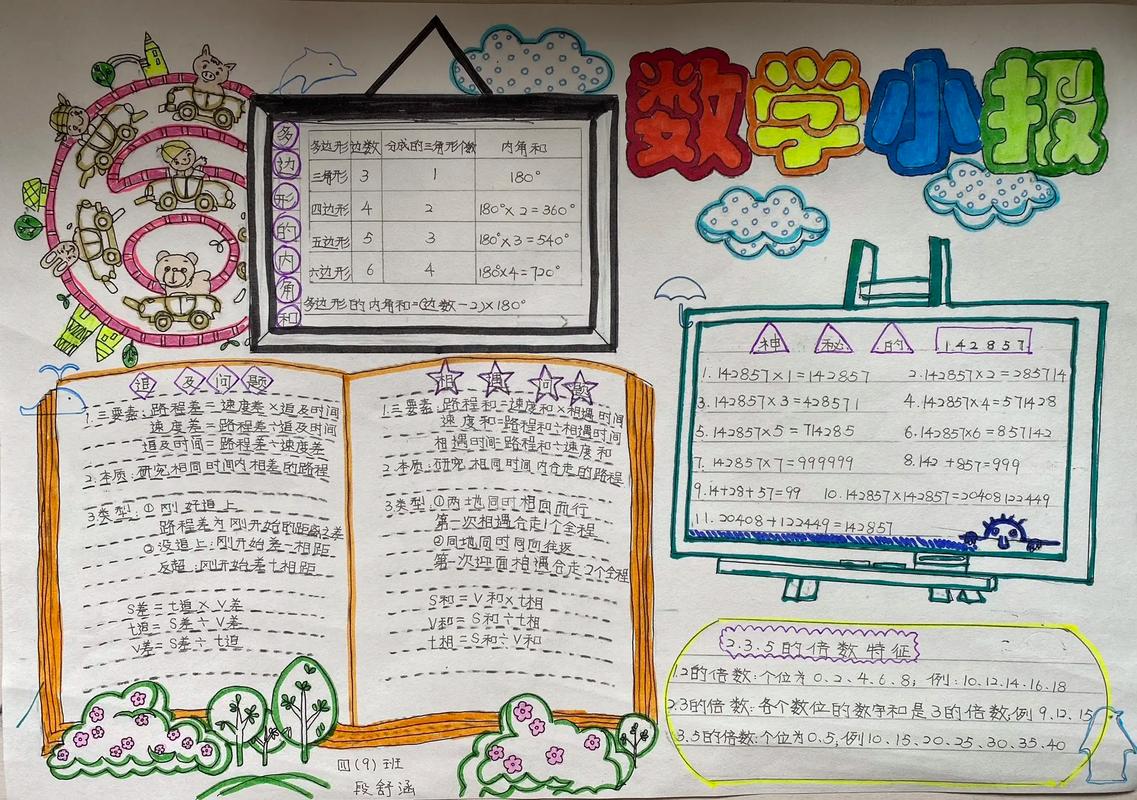 数学小报
多边形的内角和
多边形 边数 分成的三角形个数 内角和
三角形 3 1 180°
四边形 4 2 180°×2=360°
五边形 5 3 180°×3=540°
六边形 6 4 180°×4=720°
多边形的内角和=(边数-2)×180°
追及问题
1.三要素:路程差=速度差×追及时间
速度差=路程差÷追及时间
追及时间=路程差÷速度差
2.本质:研究相同时间内相差的路程
3.类型:①刚好追上
路程差为刚开始的距离之差
②没追上:刚开始差-相距
反超:刚开始差+相距
S差=t追×V差
t追=S差÷V差
V差=S差÷t追
相遇问题
1.三要素:路程和=速度和×相遇时间
速度和=路程和÷相遇时间
相遇时间=路程和÷速度和
2.本质:研究相同时间内合走的路程
3类型:①两地同时相向而行
第一次相遇合走1个全程
②同地同时同向往返
第一次迎面相遇合走2个全程
S和=V和×t相
V和=S和÷t相
t相=S和÷V和
神秘的142857
1.142857×1=142857 2.142857×2=285714
3.142857×3=428571 4.142857×4=571428
5.142857×5=714285 6.142857×6=857142
7.142857×7=999999 8.142+857=999
9.14+28+57=99 10.142857×142857=20408122449
11.20408+122449=142857
2.3.5的倍数特征
1.2的倍数:个位为0.2.4.6.8;例:10.12.14.16.18
2.3的倍数:各个数位的数字和是3的倍数;例9.12.15
3.5的倍数:个位为0.5,例10.15.20.25.30.35.40
四(9)班
段舒涵